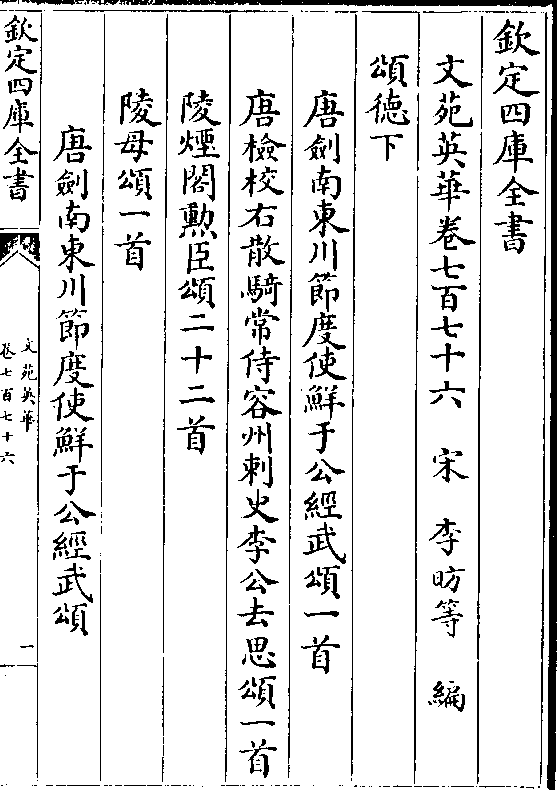 欽定四庫全書
文苑英華卷七百七十六 宋 李昉等 編
頌德下
唐劍南東川節度使鮮于公經武頌一首
唐檢校右散騎常侍容州刺史李公去思頌一首
陵煙閣勲臣頌二十二首
陵母頌一首
唐劍南東川節度使鮮于公經武頌
欽定四庫全書
文苑英華
卷七百七十六
一